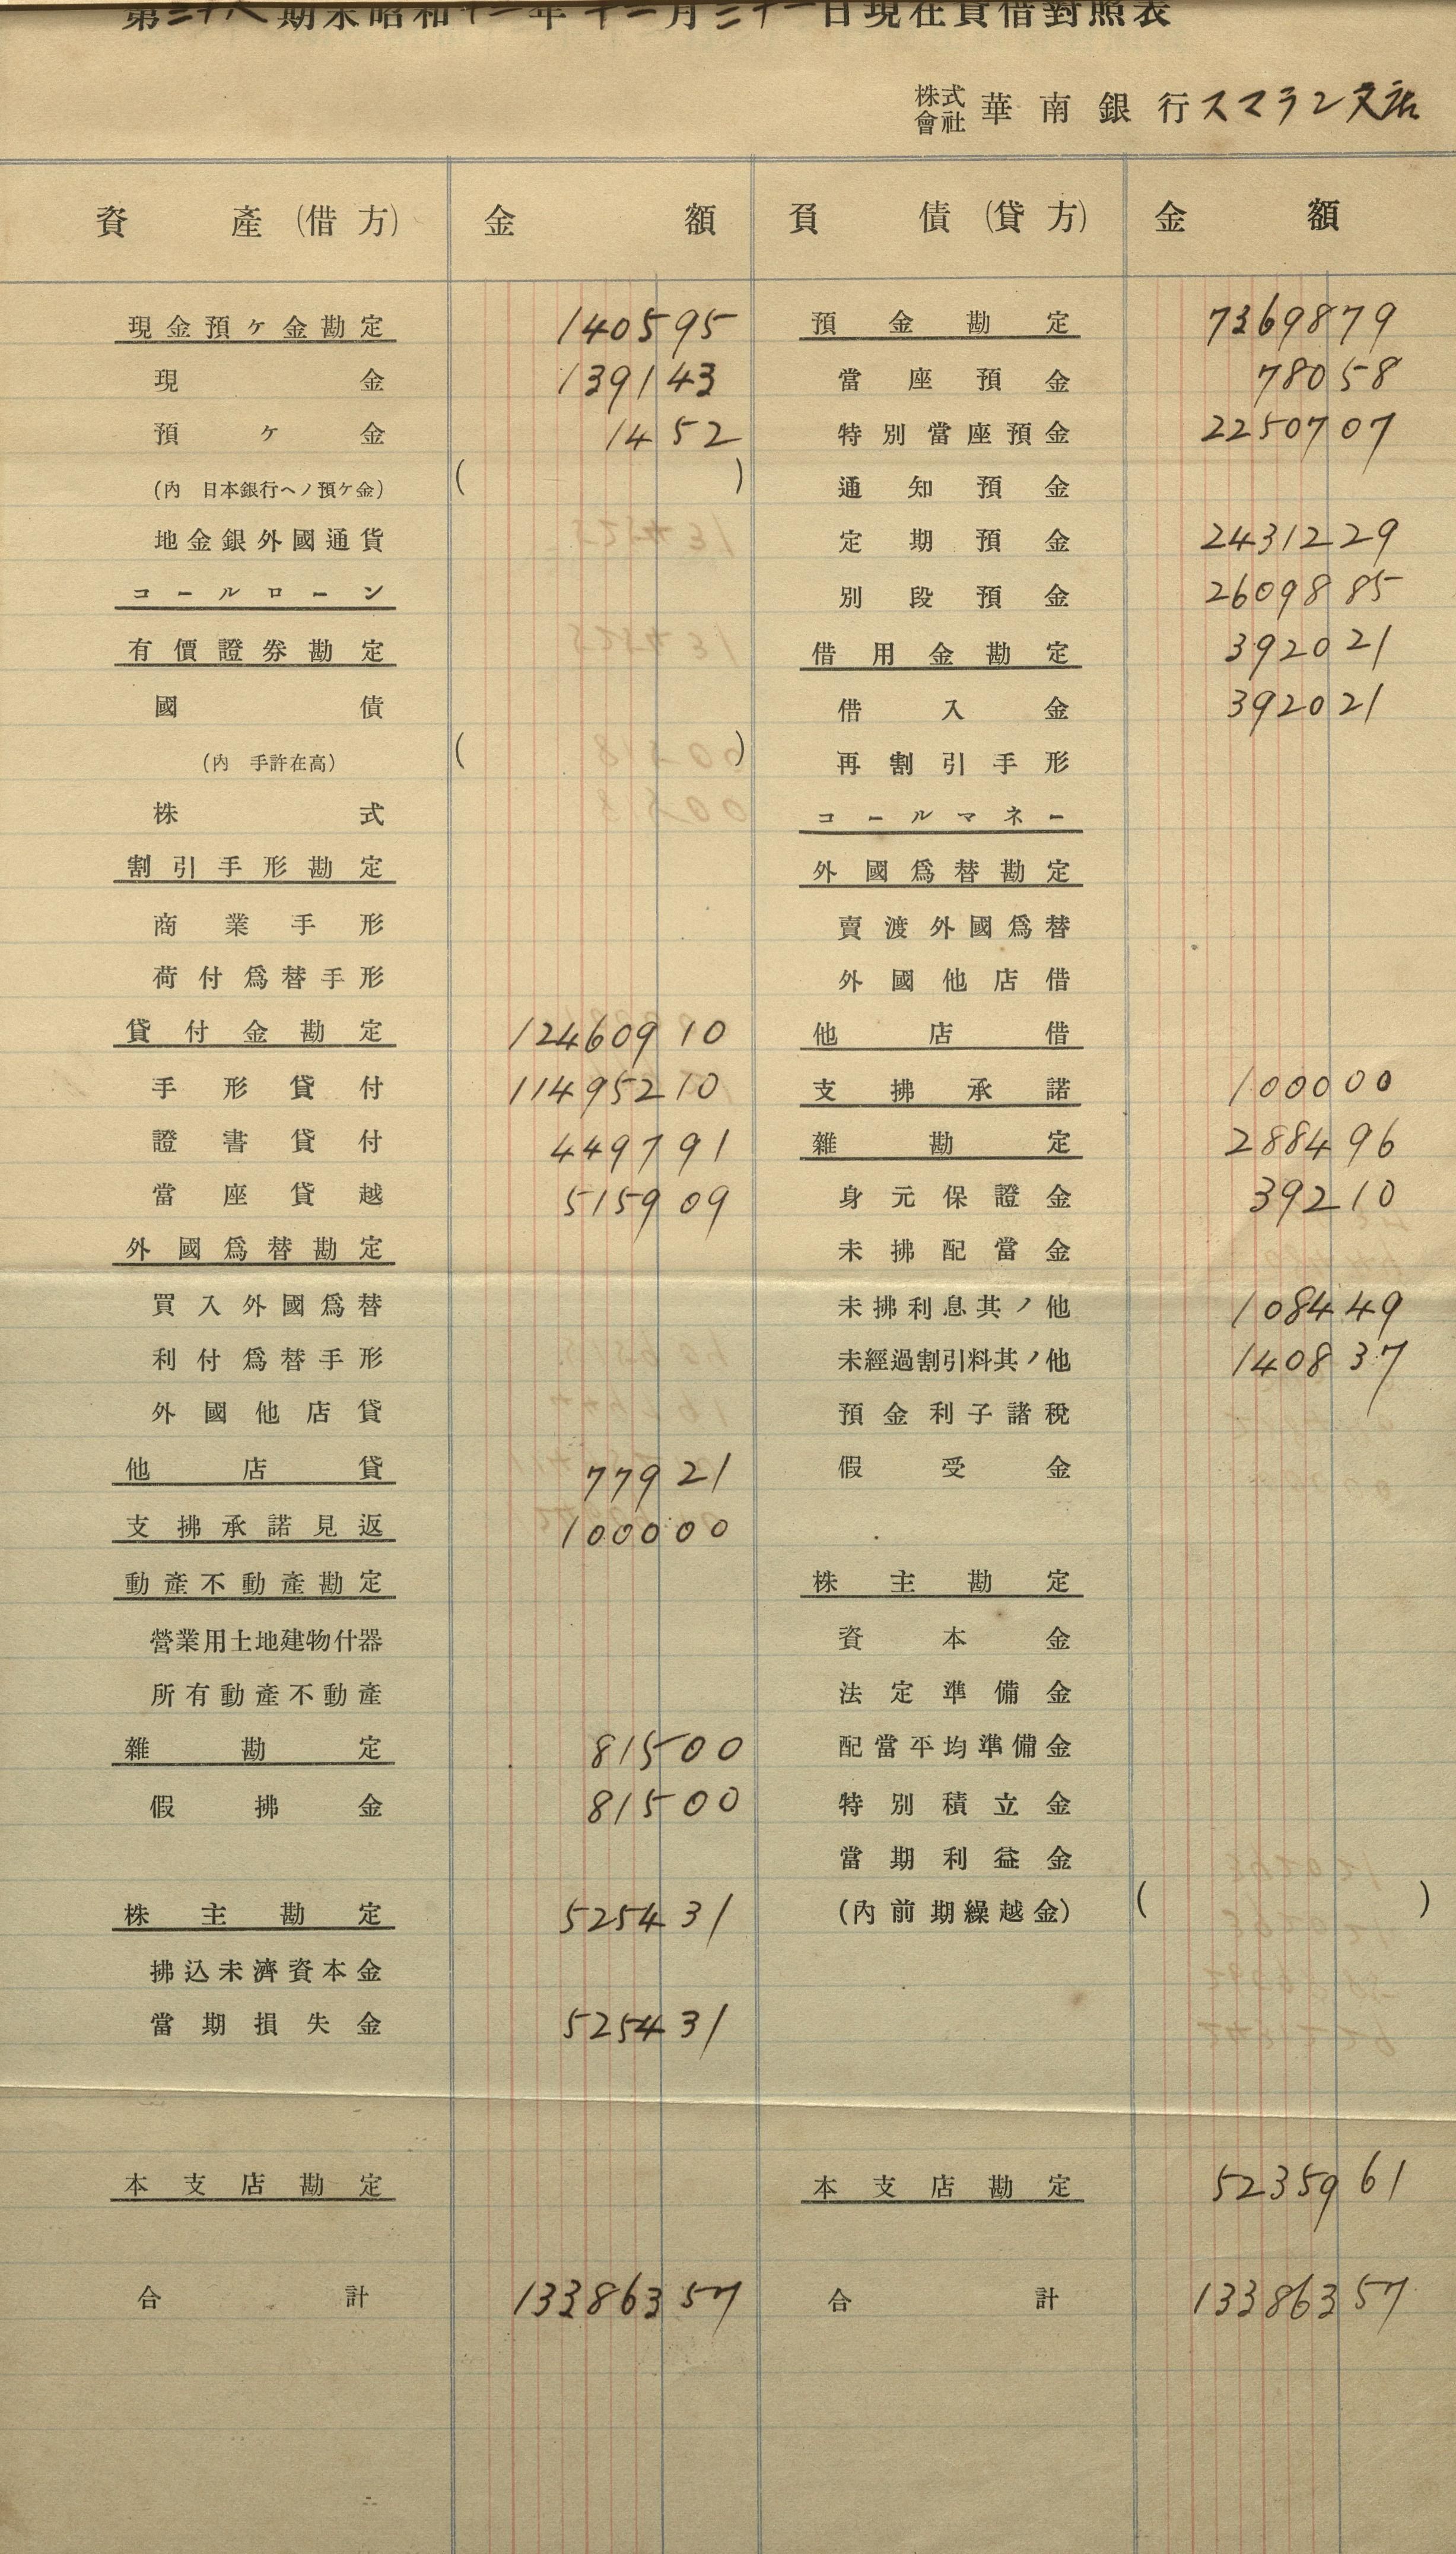 第三十八期末昭和十二年十二月三十一日現在貸借對照表
株式會社 華南銀行スマラン支店
資產(借方) 金額 負債(貸方) 金額
現金預ケ金勘定 140595 預金勘定 7369879
現金 139143 當座預金 78058
預ケ金 1452 特別當座預金 2250707
(內 日本銀行ヘノ預ケ金) ( ) 通知預金
地金銀外國通貨 定期預金 2431229
コールローン 別段預金 2609885
有價證券勘定 借用金勘定 392021
國債 借入金 392021
(內 手許在高) ( ) 再割引手形
株式 コールマネー
割引手形勘定 外國爲替勘定
商業手形 賣渡外國爲替
荷付爲替手形 外國他店借
貸付金勘定 12460910 他店借
手形貸付 11495210 支拂承諾 100000
證書貸付 449791 雜勘定 288496
當座貸越 515909 身元保證金 39210
外國爲替勘定 未拂配當金
買入外國爲替 未拂利息其ノ他 108449
利付爲替手形 未經過割引料其ノ他 140837
外國他店貸 預金利子諸稅
他店貸 77921 假受金
支拂承諾見返 100000
動產不動產勘定 株主勘定
營業用土地建物什器 資本金
所有動產不動產 法定準備金
雜勘定 81500 配當平均準備金
假拂金 81500 特別積立金
當期利益金
株主勘定 525431 (內前期繰越金) ( )
拂込未濟資本金
當期損失金 525431
本支店勘定 本支店勘定 5235961
合計 13386357 合計 13386357